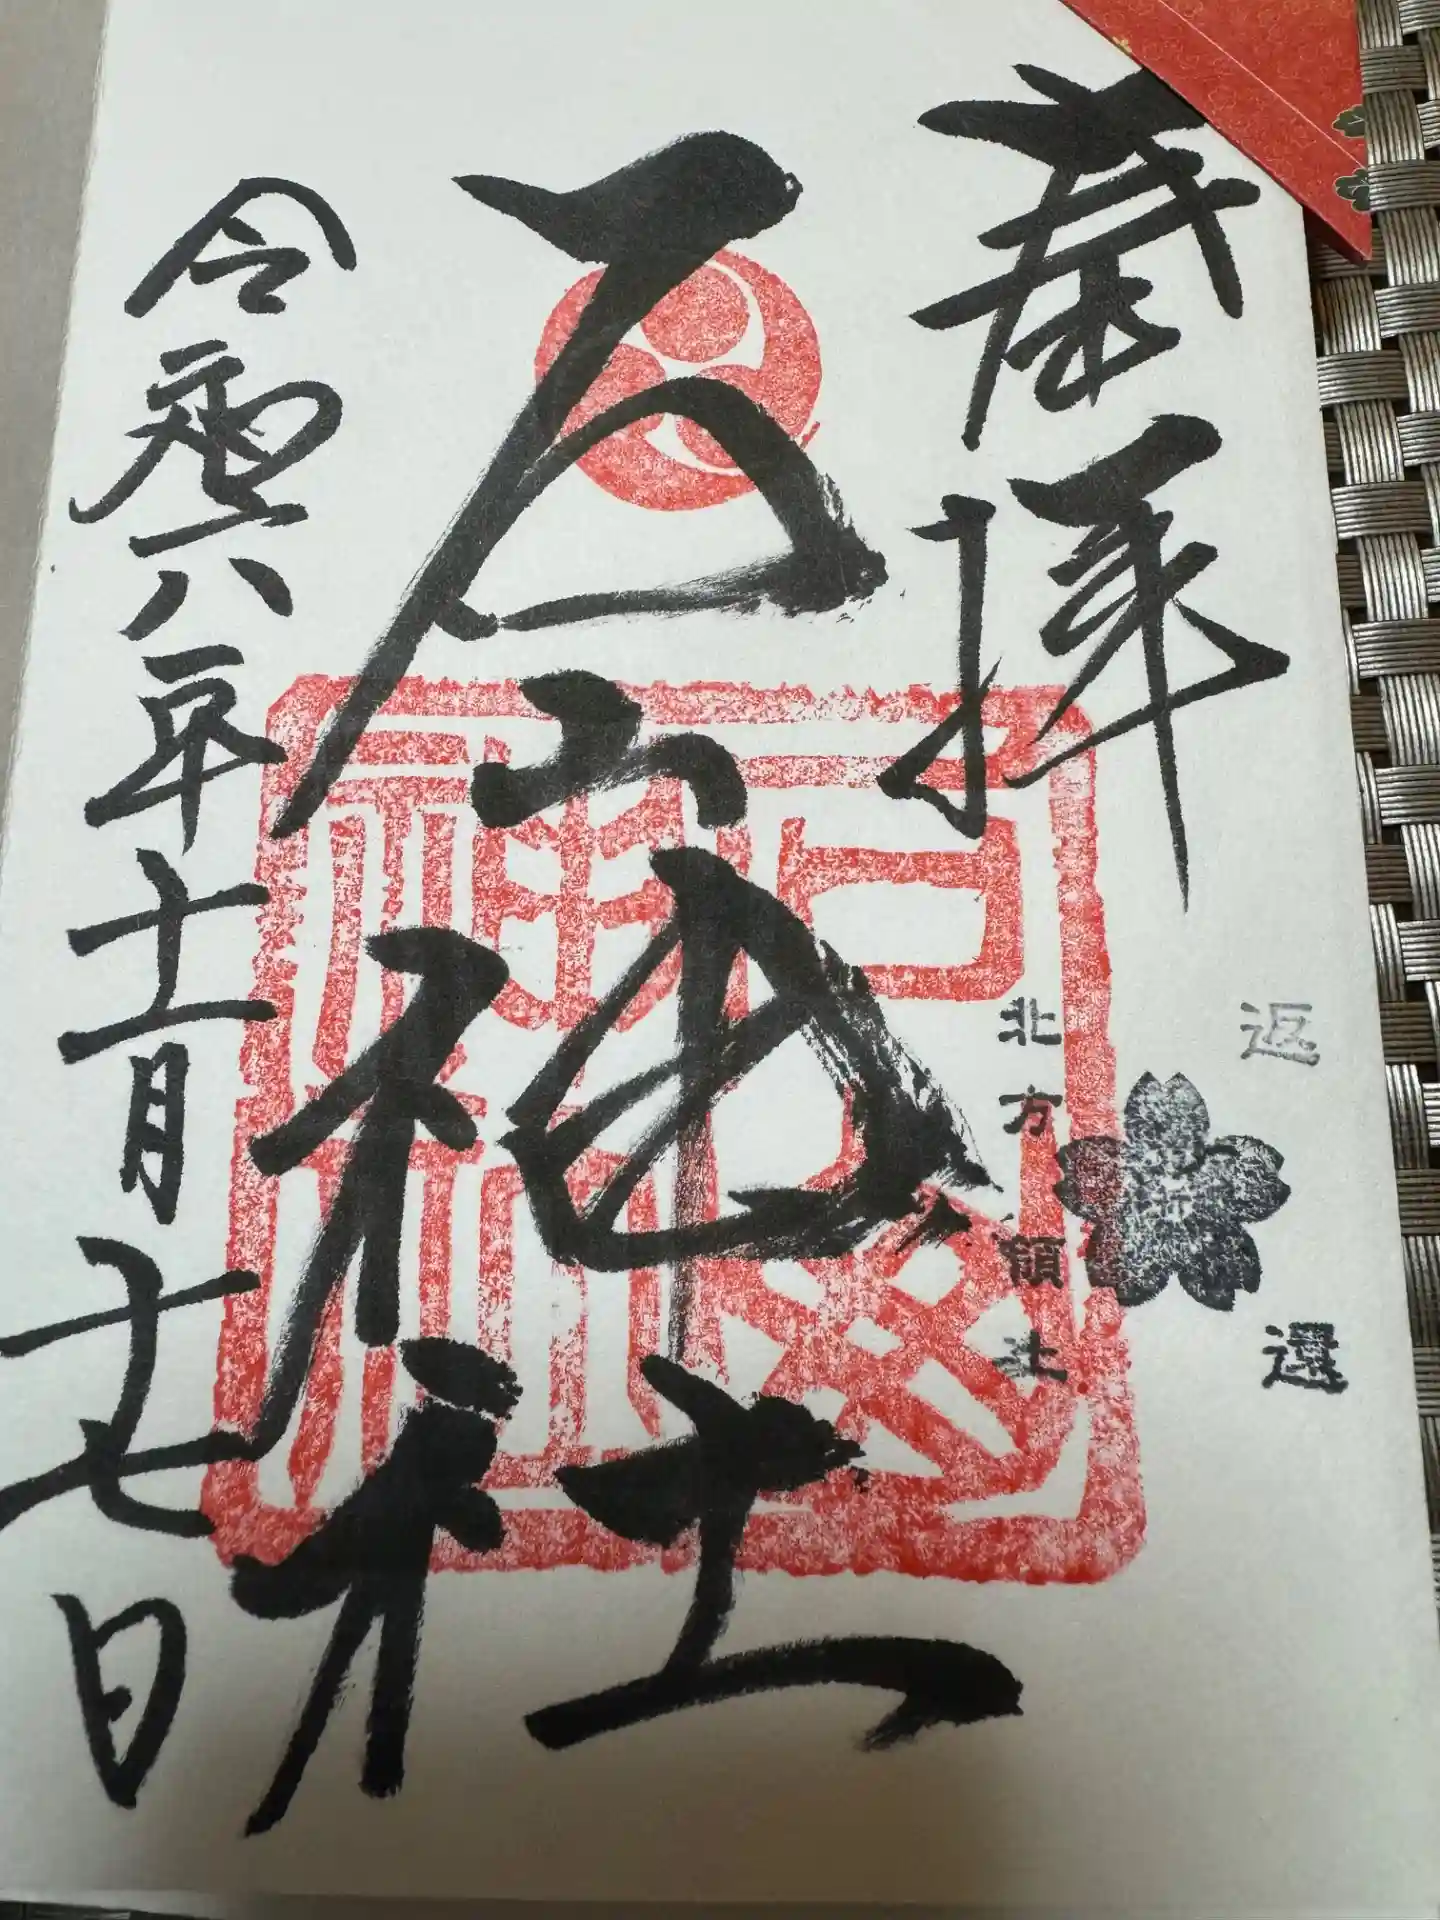 奉拝
石山神社
令和六年十一月十七日
返還
北方領土